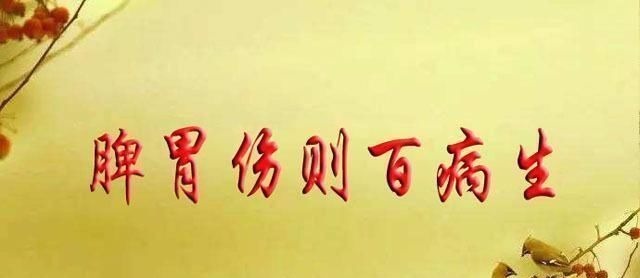 脾胃伤则百病生